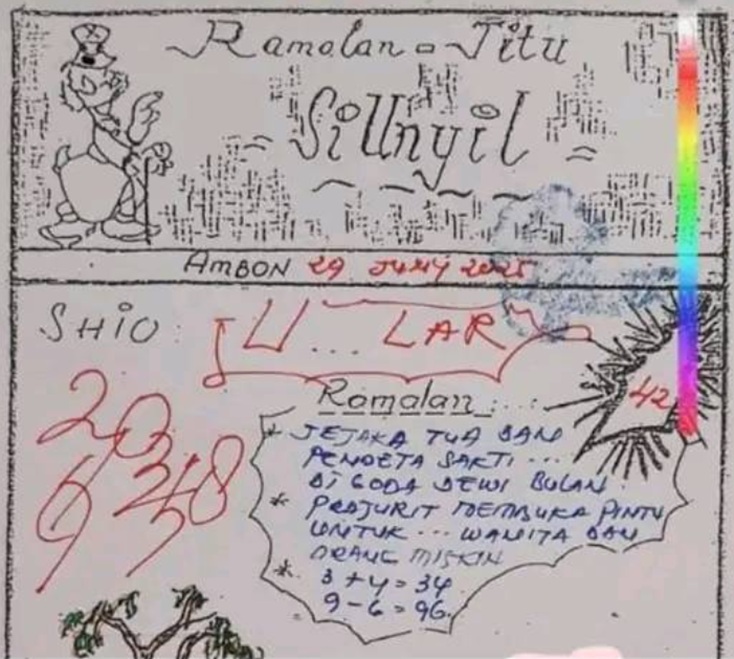 Ramalan = Jitu
= Sillnyil =
AMBON 29 JUNY 2025
SHIO : U... LAR
42
20
6 348
Ramalan :....
* JEJAKA TUA DAN
PENDETA SAKTI ...
DI GODA DEWI BULAN.
* PRAJURIT MEMBUKA PINTU
UNTUK ... WANITA DAN
ORANG MISKIN
* 3 + 4 = 34
9 - 6 = 96.